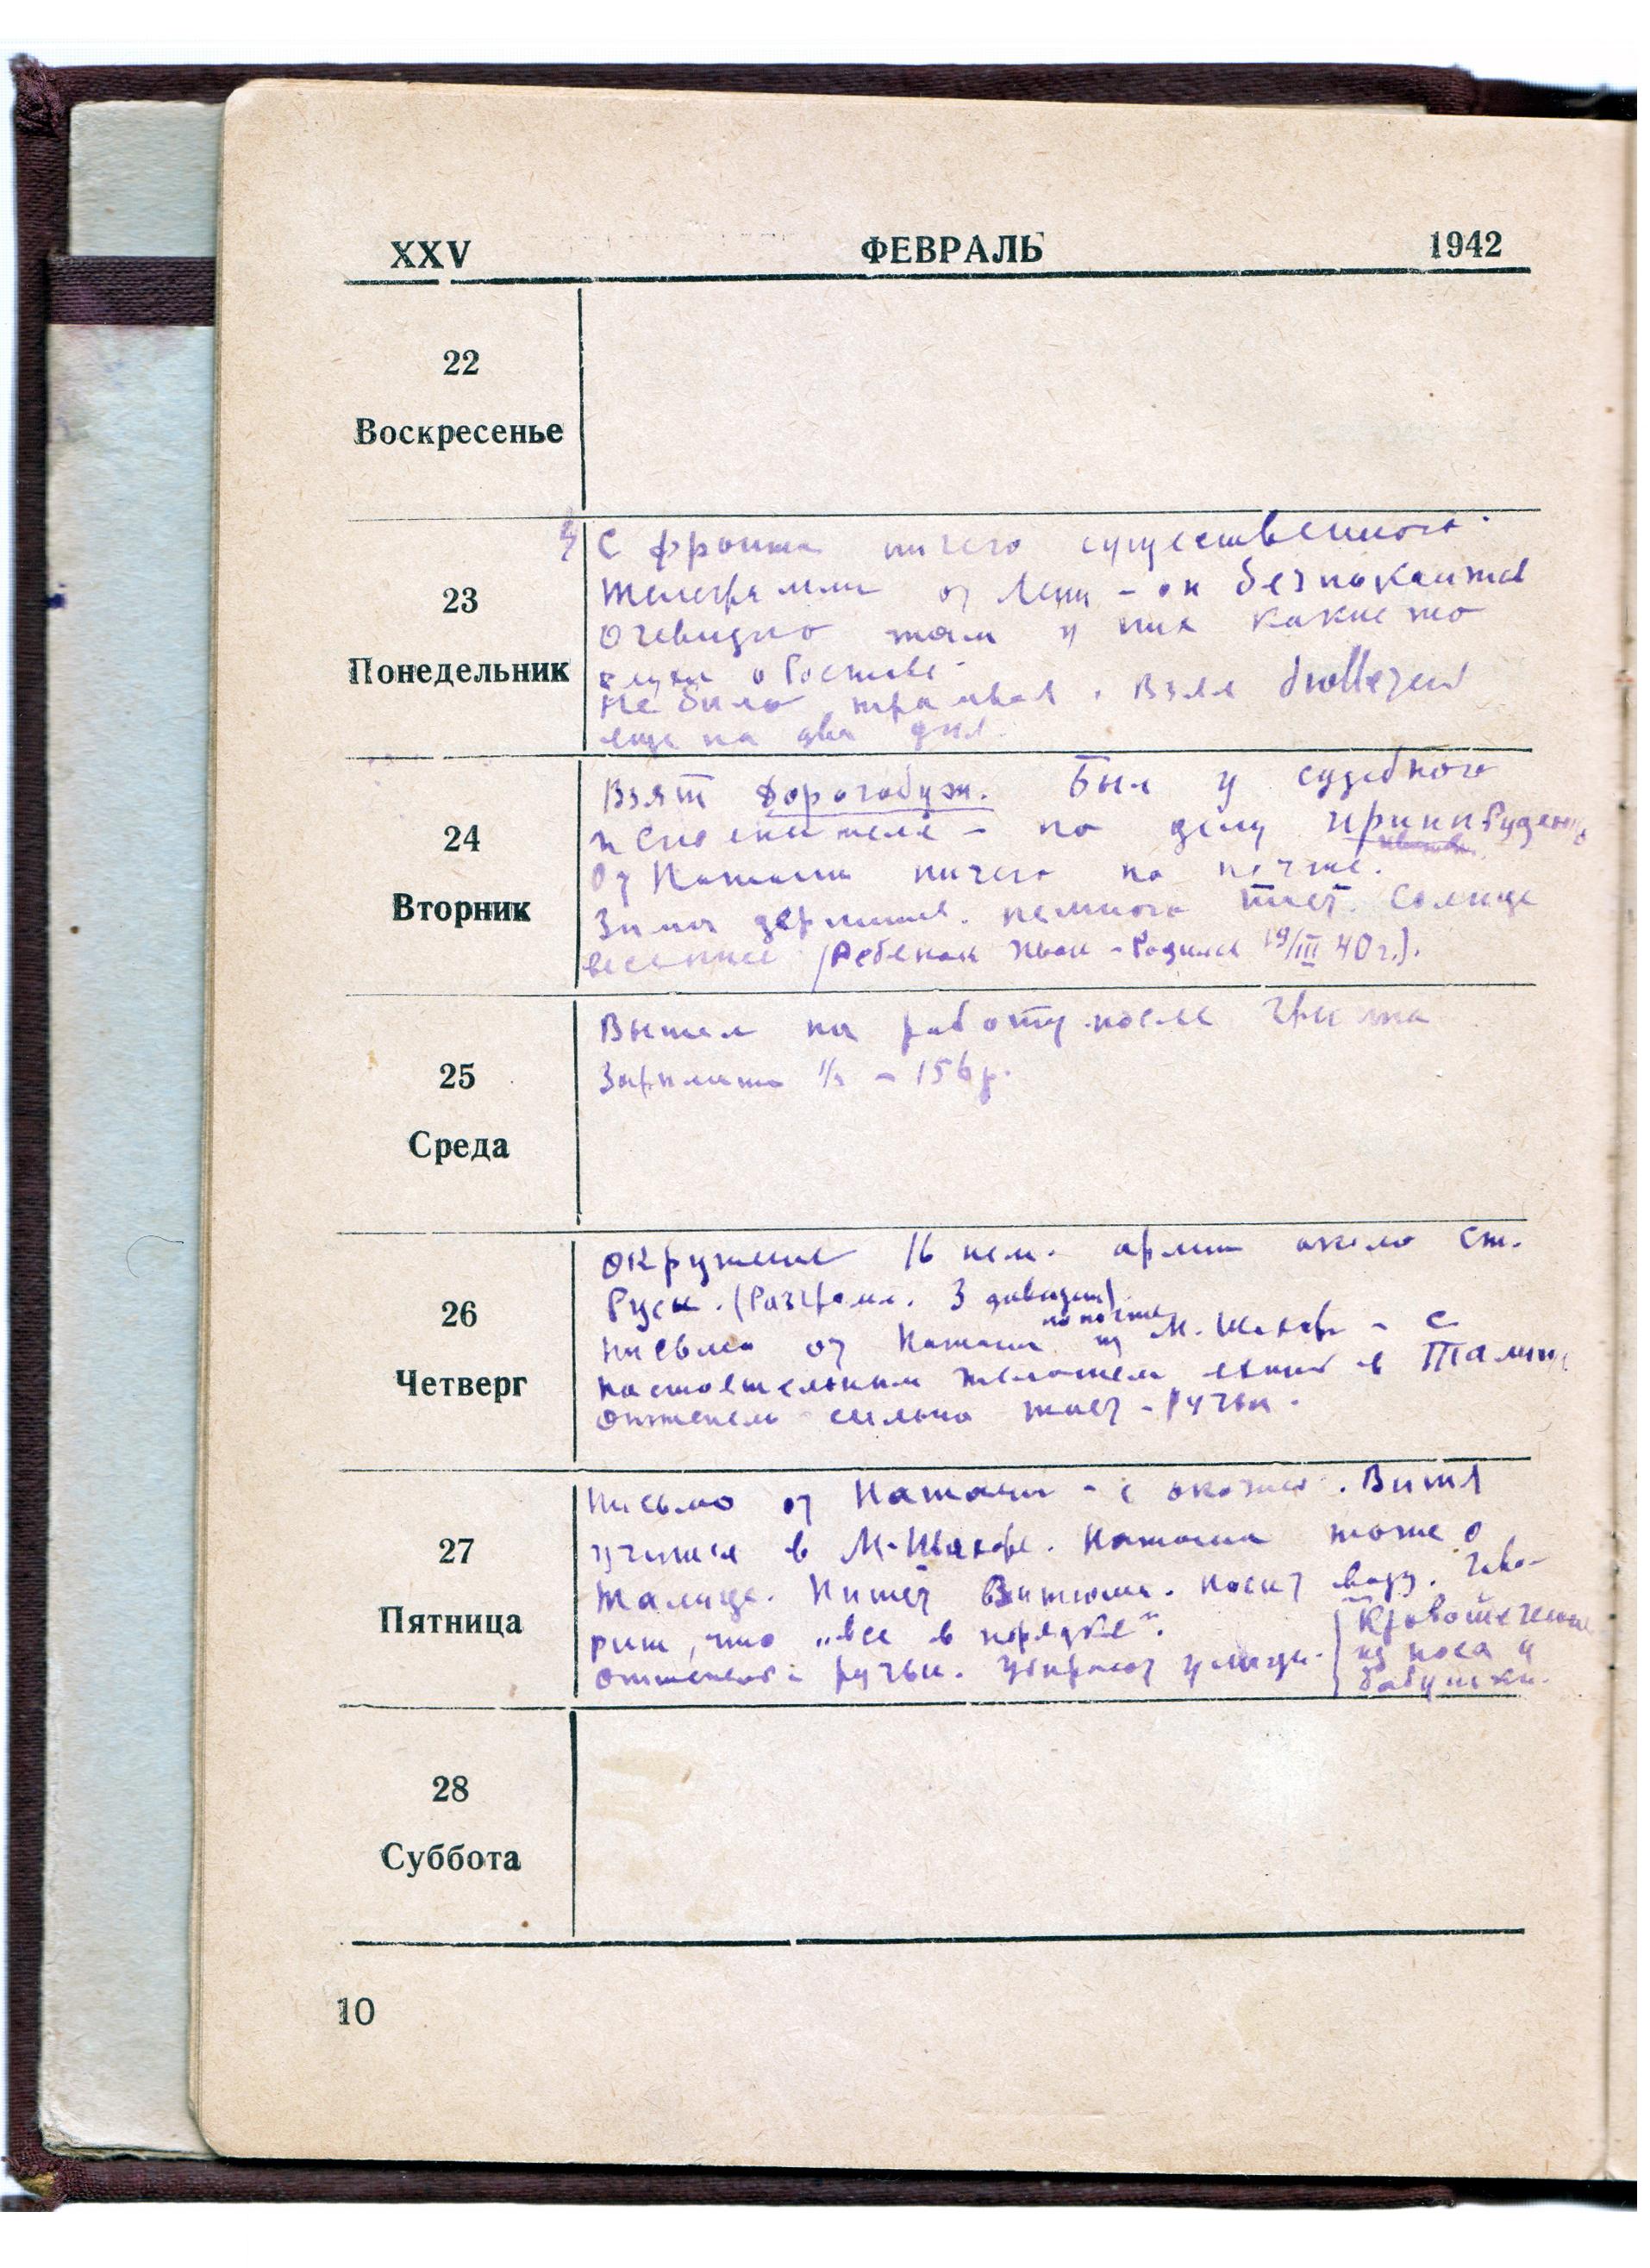 XXV ФЕВРАЛЬ 1942
22
Воскресенье
23
Понедельник
С фронта ничего существенного.
Телеграмма от Лени - он безпокоится
очевидно там у них какие то
слухи о Ростове.
Не было трамвая. Взял бюллетень
еще на два дня.
24
Вторник
Взят Дорогобуж. Был у судебного
исполнителя - по делу Ирины Руденко
От Наташи ничего на почте.
Зима держится. немного тает. Солнце
весеннее (Ребенок Иван - Родился 19/III 40 г.).
25
Среда
Вышел на работу после гриппа
Зарплата - 156 р.
26
Четверг
Окружение 16 нем. армии около Ст.
Русы. (Разгромл. 3 дивизии)
по почте
Письмо от Наташи из М. Шахр - с
настоятельным желанием ехать в
Оттепель сильно тает - Ручьи.
27
Пятница
Письмо от Наташи - с оказией. Витя
учится в М-Шахре. Наташа тоже о
Пишет Витюша. носит воду. Гово-
рит, что „все в порядке".
Оттепель - ручьи. Убирают улицы.
Кровотечение
из носа у
бабушки.
28
Суббота
10